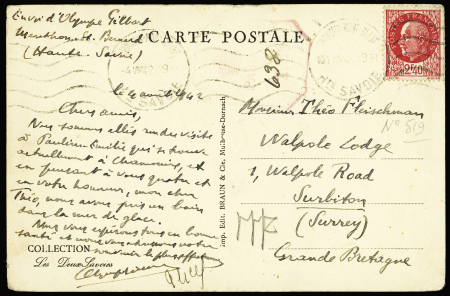 Envoi d'Olympe Gilbert
Menthon-St. Bernard
(Haute-Savoie)
CARTE POSTALE
698
le 4 août 1942
Chers amis,
Nous sommes allés rendre visite
à Paulin qui se trouve
actuellement à Chamonix, et
en pensant à vous quatre et
en votre honneur, mon cher
Théo, nous avons pris un bain
dans la mer de glace.
Nous vous espérons tous en bonne
santé et nous vous
souvenir le plus
COLLECTION
Les Deux-Savoies
Imp. Edit. BRAUN & Cie, Mulhouse-Dornach
POSTES FRANÇAISES
Monsieur Théo Fleischman
N° 819
Walpole Lodge
1, Walpole Road
Surbiton
(Surrey)
Grande Bretagne